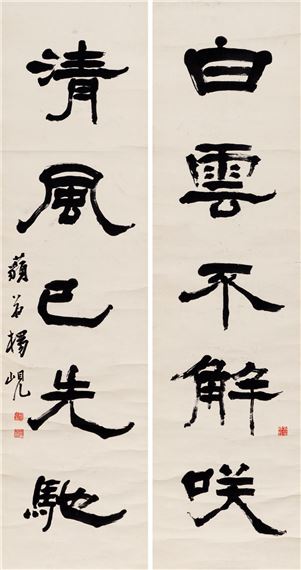 白雲不解咲
清風已先馳
藐翁楊峴